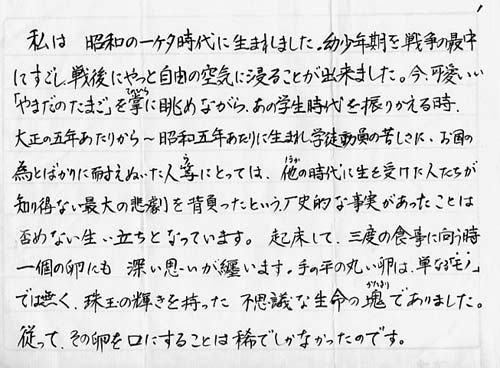 私は 昭和の一ケタ時代に生まれしました。幼少年期を戦争の最中
にすごし、戦後にやっと自由の空気に浸ることが出来ました。今、可愛いい
「やまだのたまご」を掌に眺めながら、あの学生時代を振りかえる時、
大正の五年あたりから~昭和五年あたりに生まれ、学徒動員の苦しさに、お国の
為とばかりに耐えぬいた人等にとっては、他の時代に生を受けた人たちが
知り得ない最大の悲劇を背負ったという、歴史的な事実があったことは
否めない生い立ちとなっています。 起床して、三度の食事に向う時
一個の卵にも 深い思いが纏います。手の平の丸い卵は、単なる「モノ」
では無く、珠玉の輝きを持った 不思議な生命の塊でありました。
従って、その卵を口にすることは稀でしかなかったのです。